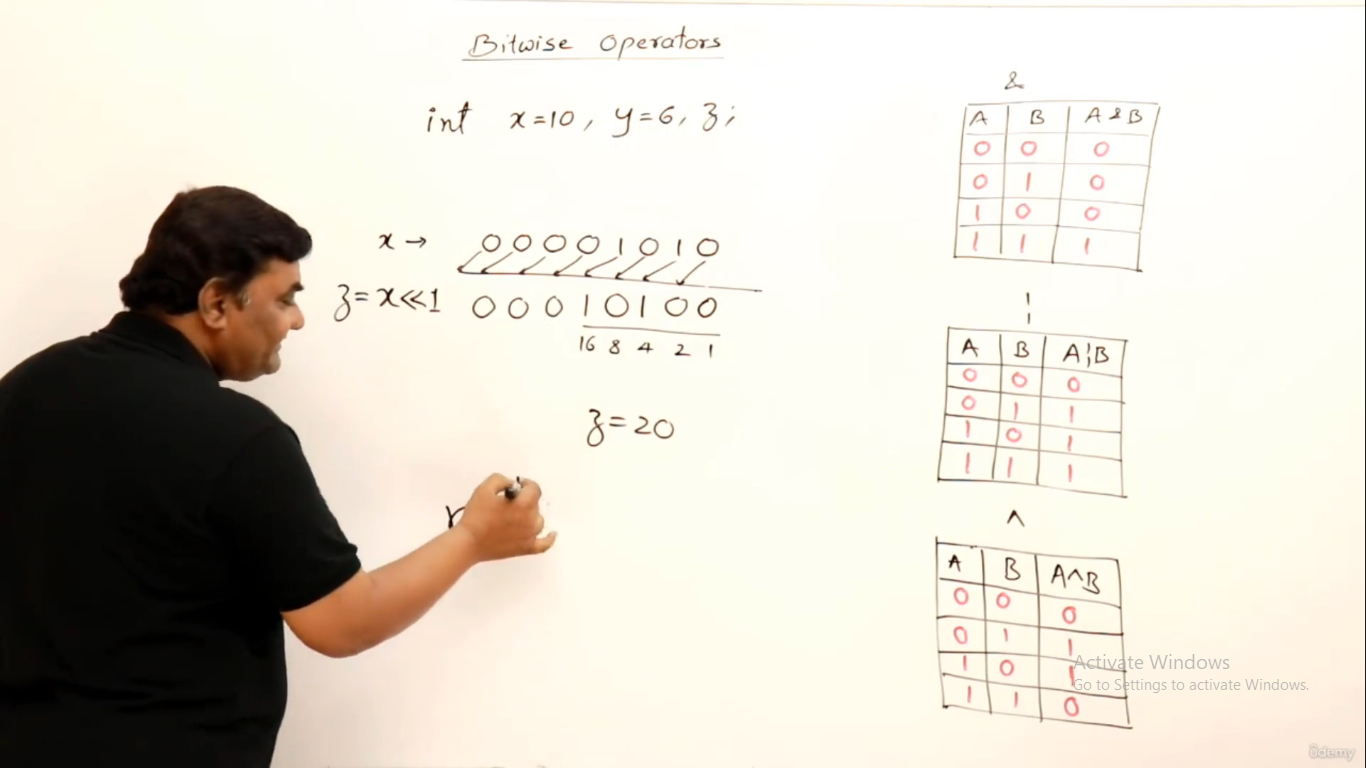 Bitwise Operators
int x=10, y=6, z;
x → 0 0 0 0 1 0 1 0
z=x<<1 0 0 0 1 0 1 0 0
16 8 4 2 1
z=20
&
A B A&B
0 0 0
0 1 0
1 0 0
1 1 1
¦
A B A¦B
0 0 0
0 1 1
1 0 1
1 1 1
^
A B A^B
0 0 0
0 1 1
1 0 1
1 1 0
Activate Windows
Go to Settings to activate Windows.
ûdemy